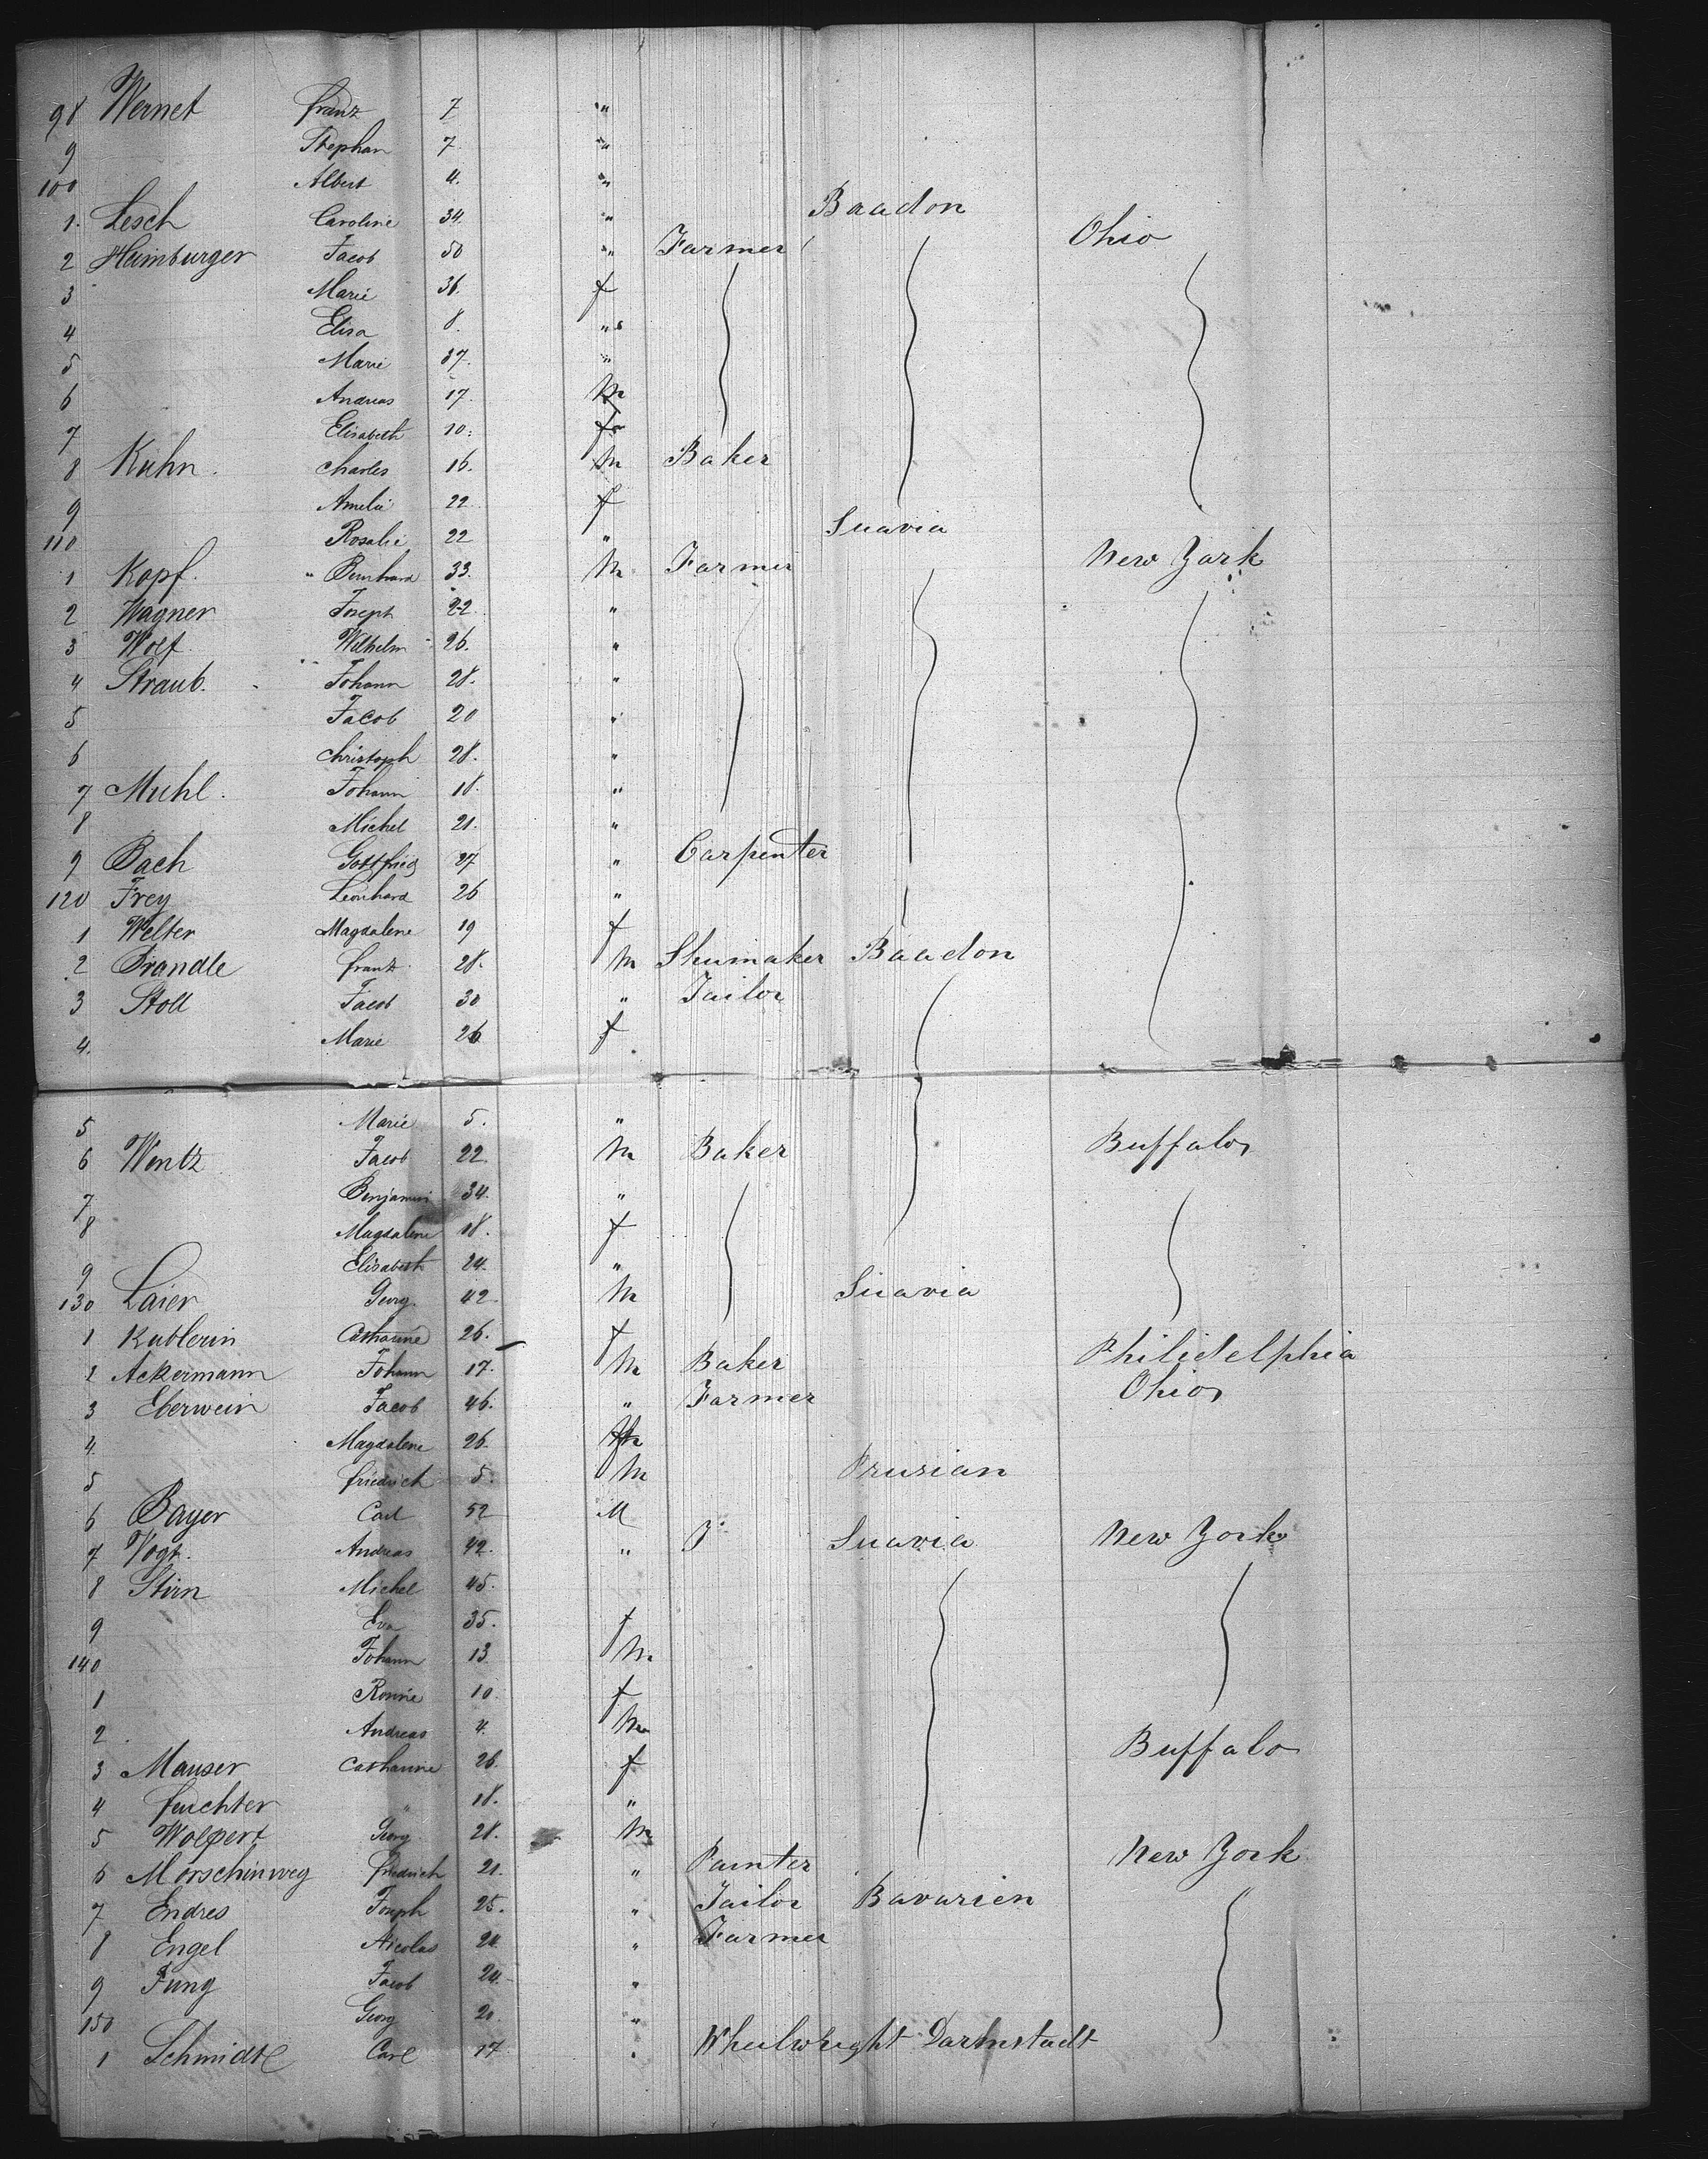 98 Wernet Franz 7 "
9 Stephan 7 "
100 Albert 4. "
1. Lesch Caroline 34. " Baadon
2 Heimburger Jacob 50 " Farmer Ohio
3 Marie 36. f
4 Elisa 8. "
5 Marie 37. "
6 Andreas 17. m
7 Elisabeth 10. f
8 Kuhn. Charles 16. m Baker
9 Amelie 22 f
110 Rosalie 22 " Suavia
1 Kopf. Bernhard 33. m Farmer New York
2 Wagner Joseph 22. "
3 Wolf Wilhelm 26. "
4 Straub. Johann 28. "
5 Jacob 20 "
6 Christoph 28. "
7 Muhl. Johann 18. "
8 Michel 21. "
9 Bach Gottfried 27 " Carpenter
120 Frey Leonhard 26 "
1 Welter Magdalene 19 f
2 Brandle Franz 28. m Shumaker Baadon
3 Stoll Jacob 30 " Tailor
4. Marie 26 f
5 Marie 5. "
6 Wentz Jacob 22. m Baker Buffalo
7 Benjamin 34. "
8 Magdalene 18. f
9 Elisabeth 24. "
130 Laier Georg. 42. m Suavia
1 Kublerin Catharine 26. f
2 Ackermann Johann 17. m Baker Philidelphia
3 Eberwein Jacob 46. " Farmer Ohio
4. Magdalene 26.
5 Friedrich 5. m Prusian
6 Bayer Carl 52 M
7 Vogt. Andreas 42. " Suavia New York
8 Stirn Michel 45.
9 Eva 35. f
140 Johann 13. m
1 10. f
2 Andreas 4. m
3 Mauser Catharine 26. f Buffalo
4 Feuchter " 18. "
5 Wolpert Georg 28. m
6 Morschinweg Friedrich 21. " Painter New York
7 Endres Joseph 25. " Tailor Bavarien
8 Engel Nicolas 24 " Farmer
9 Jung Jacob 24. "
150 Georg 20. "
1 Schmidt Carl 17 " Wheelwright Darmstadt